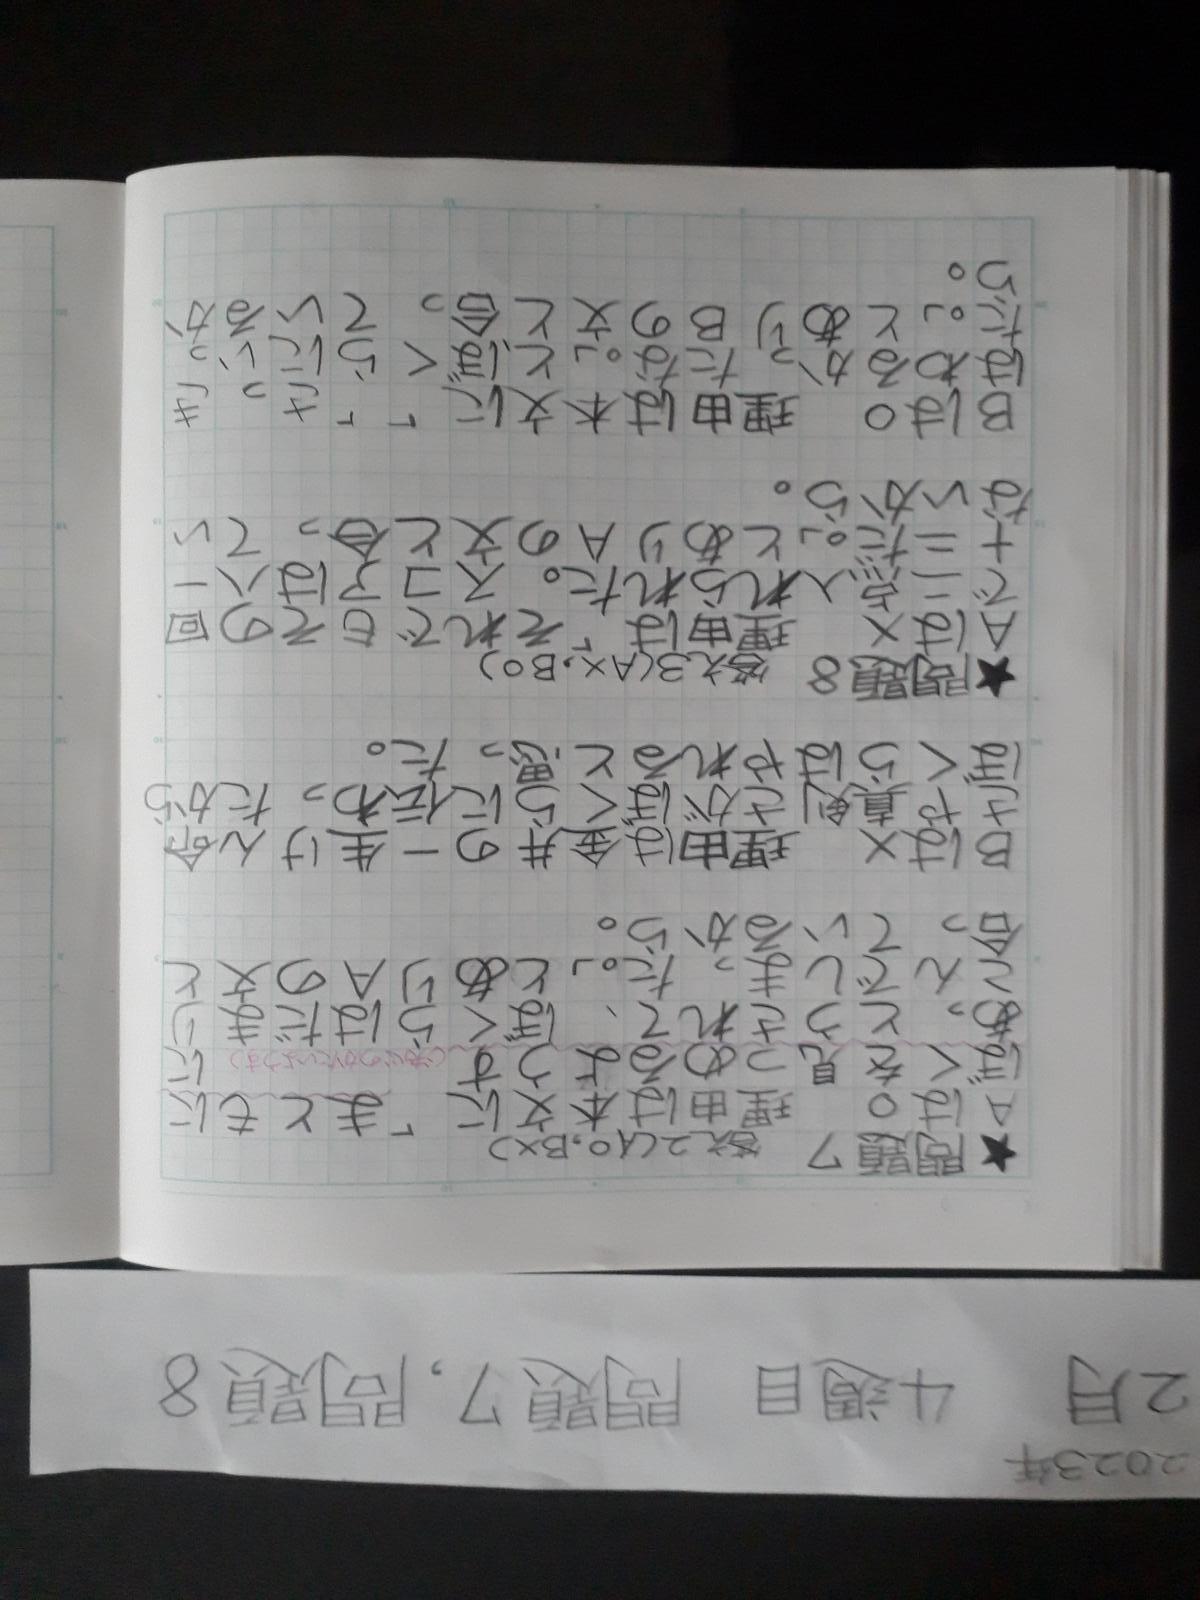 2023年
2月 4週目 問題7,問題8
★問題7 答え2(A○,B×)
Aは○ 理由は本文に「まともに
ぼくを見つめるようすに
あっとうされて、ぼくらはだまり
こんでしまった。」とありAの文と
合っているから。
Bは× 理由は金井の一生けん命
さや真剣さがぼくらに伝わったから
ぼくらはやれると思った。
★問題8 答え3(A×,B○)
Aは× 理由は「それでもその回
で二点入れられた。スコアは八一
十二だ。」とありAの文と合ってい
ないから。
Bは○ 理由は本文に「「さっき
はわるかったな。」とぼくらにいっ
た。」とありBの文と合っているか
ら。